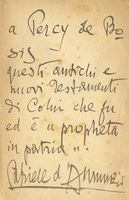 a Percy de Bo-
sis
questi antichi e
nuovi testamenti
di Colui che fu
ed è "propheta
in patria"..
Gabriele d'Annunzio